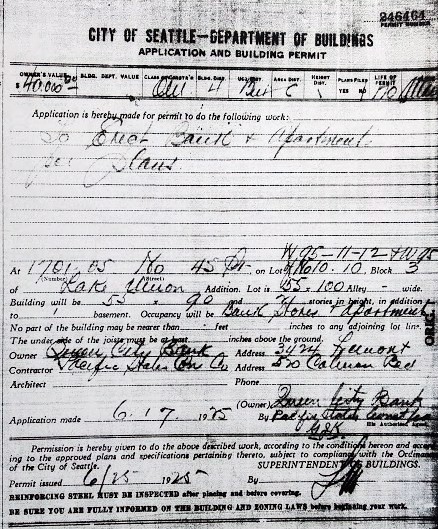 246464
PERMIT NUMBER
CITY OF SEATTLE—DEPARTMENT OF BUILDINGS
APPLICATION AND BUILDING PERMIT
OWNER'S VALUE BLDG. DEPT. VALUE CLASS OF CONSTR'N BLDG. DIST. USE DIST. AREA DIST. HEIGHT DIST. PLANS FILED LIFE OF PERMIT
$ 40,000 00 4 C YES NO
Application is hereby made for permit to do the following work:
To Erect Bank & Apartments
per Plans
W 95-11-12 & W 95
At 1701-05 No 45 St on Lot 10, Block 3
(Number) (Street)
of Lake Union Addition. Lot is 55 x 100 Alley wide.
Building will be 55 x 90 and stories in height, in addition
to 1 basement. Occupancy will be Bank Stores & Apartment
No part of the building may be nearer than feet inches to any adjoining lot line.
The under side of the joists must be at least inches above the ground.
Owner Queen City Bank Address 3424 Fremont
Contractor Pacific States Con Co Address 520
Architect Phone
(Owner) Queen City Bank
Application made 6-17 1925 By Pacific States Const Co
His Authorized Agent
Permission is hereby given to do the above described work, according to the conditions hereon and according
to the approved plans and specifications pertaining thereto, subject to compliance with the Ordinances
of the City of Seattle. SUPERINTENDENT OF BUILDINGS.
Permit issued 6/25 1925 By
REINFORCING STEEL MUST BE INSPECTED after placing and before covering.
BE SURE YOU ARE FULLY INFORMED ON THE BUILDING AND ZONING LAWS before beginning your work.